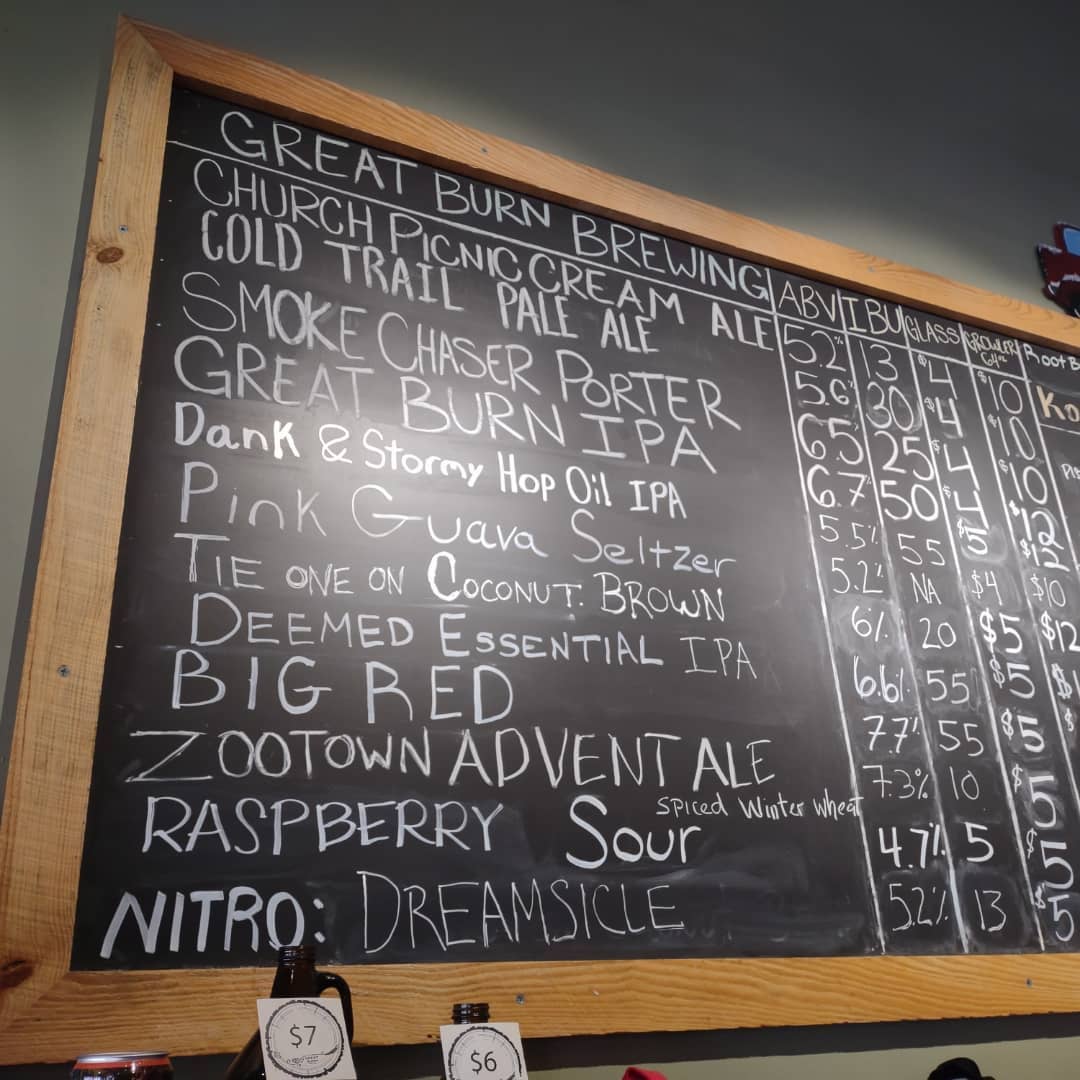 GREAT BURN BREWING ABV IBU GLASS GROWLER 64oz
CHURCH PICNIC CREAM ALE 5.2% 13 $4 $10
COLD TRAIL PALE ALE 5.6% 30 $4 $10
SMOKE CHASER PORTER 6.5% 25 $4 $10
GREAT BURN IPA 6.7% 50 $4 $12
Dank & Stormy Hop Oil IPA 5.5% 55 $5 $12
Pink Guava Seltzer 5.2% NA $4 $10
TIE ONE ON COCONUT BROWN 6% 20 $5 $12
DEEMED ESSENTIAL IPA 6.6% 55 $5
BIG RED 7.7% 55 $5
ZOOTOWN ADVENT ALE 7.3% 10 $5
Spiced Winter Wheat
RASPBERRY Sour 4.7% 5 $5
NITRO: DREAMSICLE 5.2% 13 $5
$7
$6